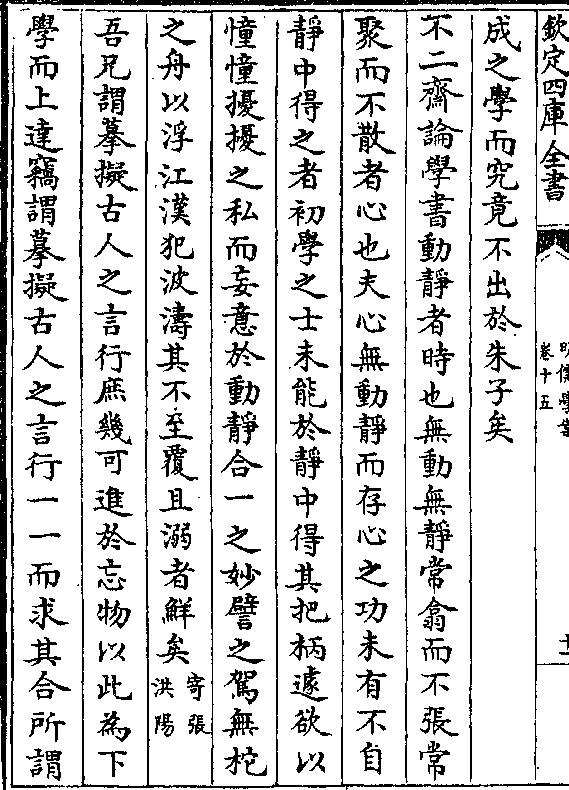 欽定四庫全書
明儒學案
卷十五
十二
成之學而究竟不出於朱子矣
不二齋論學書動靜者時也無動無靜常翕而不張常
聚而不散者心也夫心無動靜而存心之功未有不自
靜中得之者初學之士未能於靜中得其把柄遽欲以
憧憧擾擾之私而妄意於動靜合一之妙譬之駕無柁
之舟以浮江漢犯波濤其不至覆且溺者鮮矣寄張洪陽
吾兄謂摹擬古人之言行庶幾可進於忘物以此為下
學而上達竊謂摹擬古人之言行一一而求其合所謂